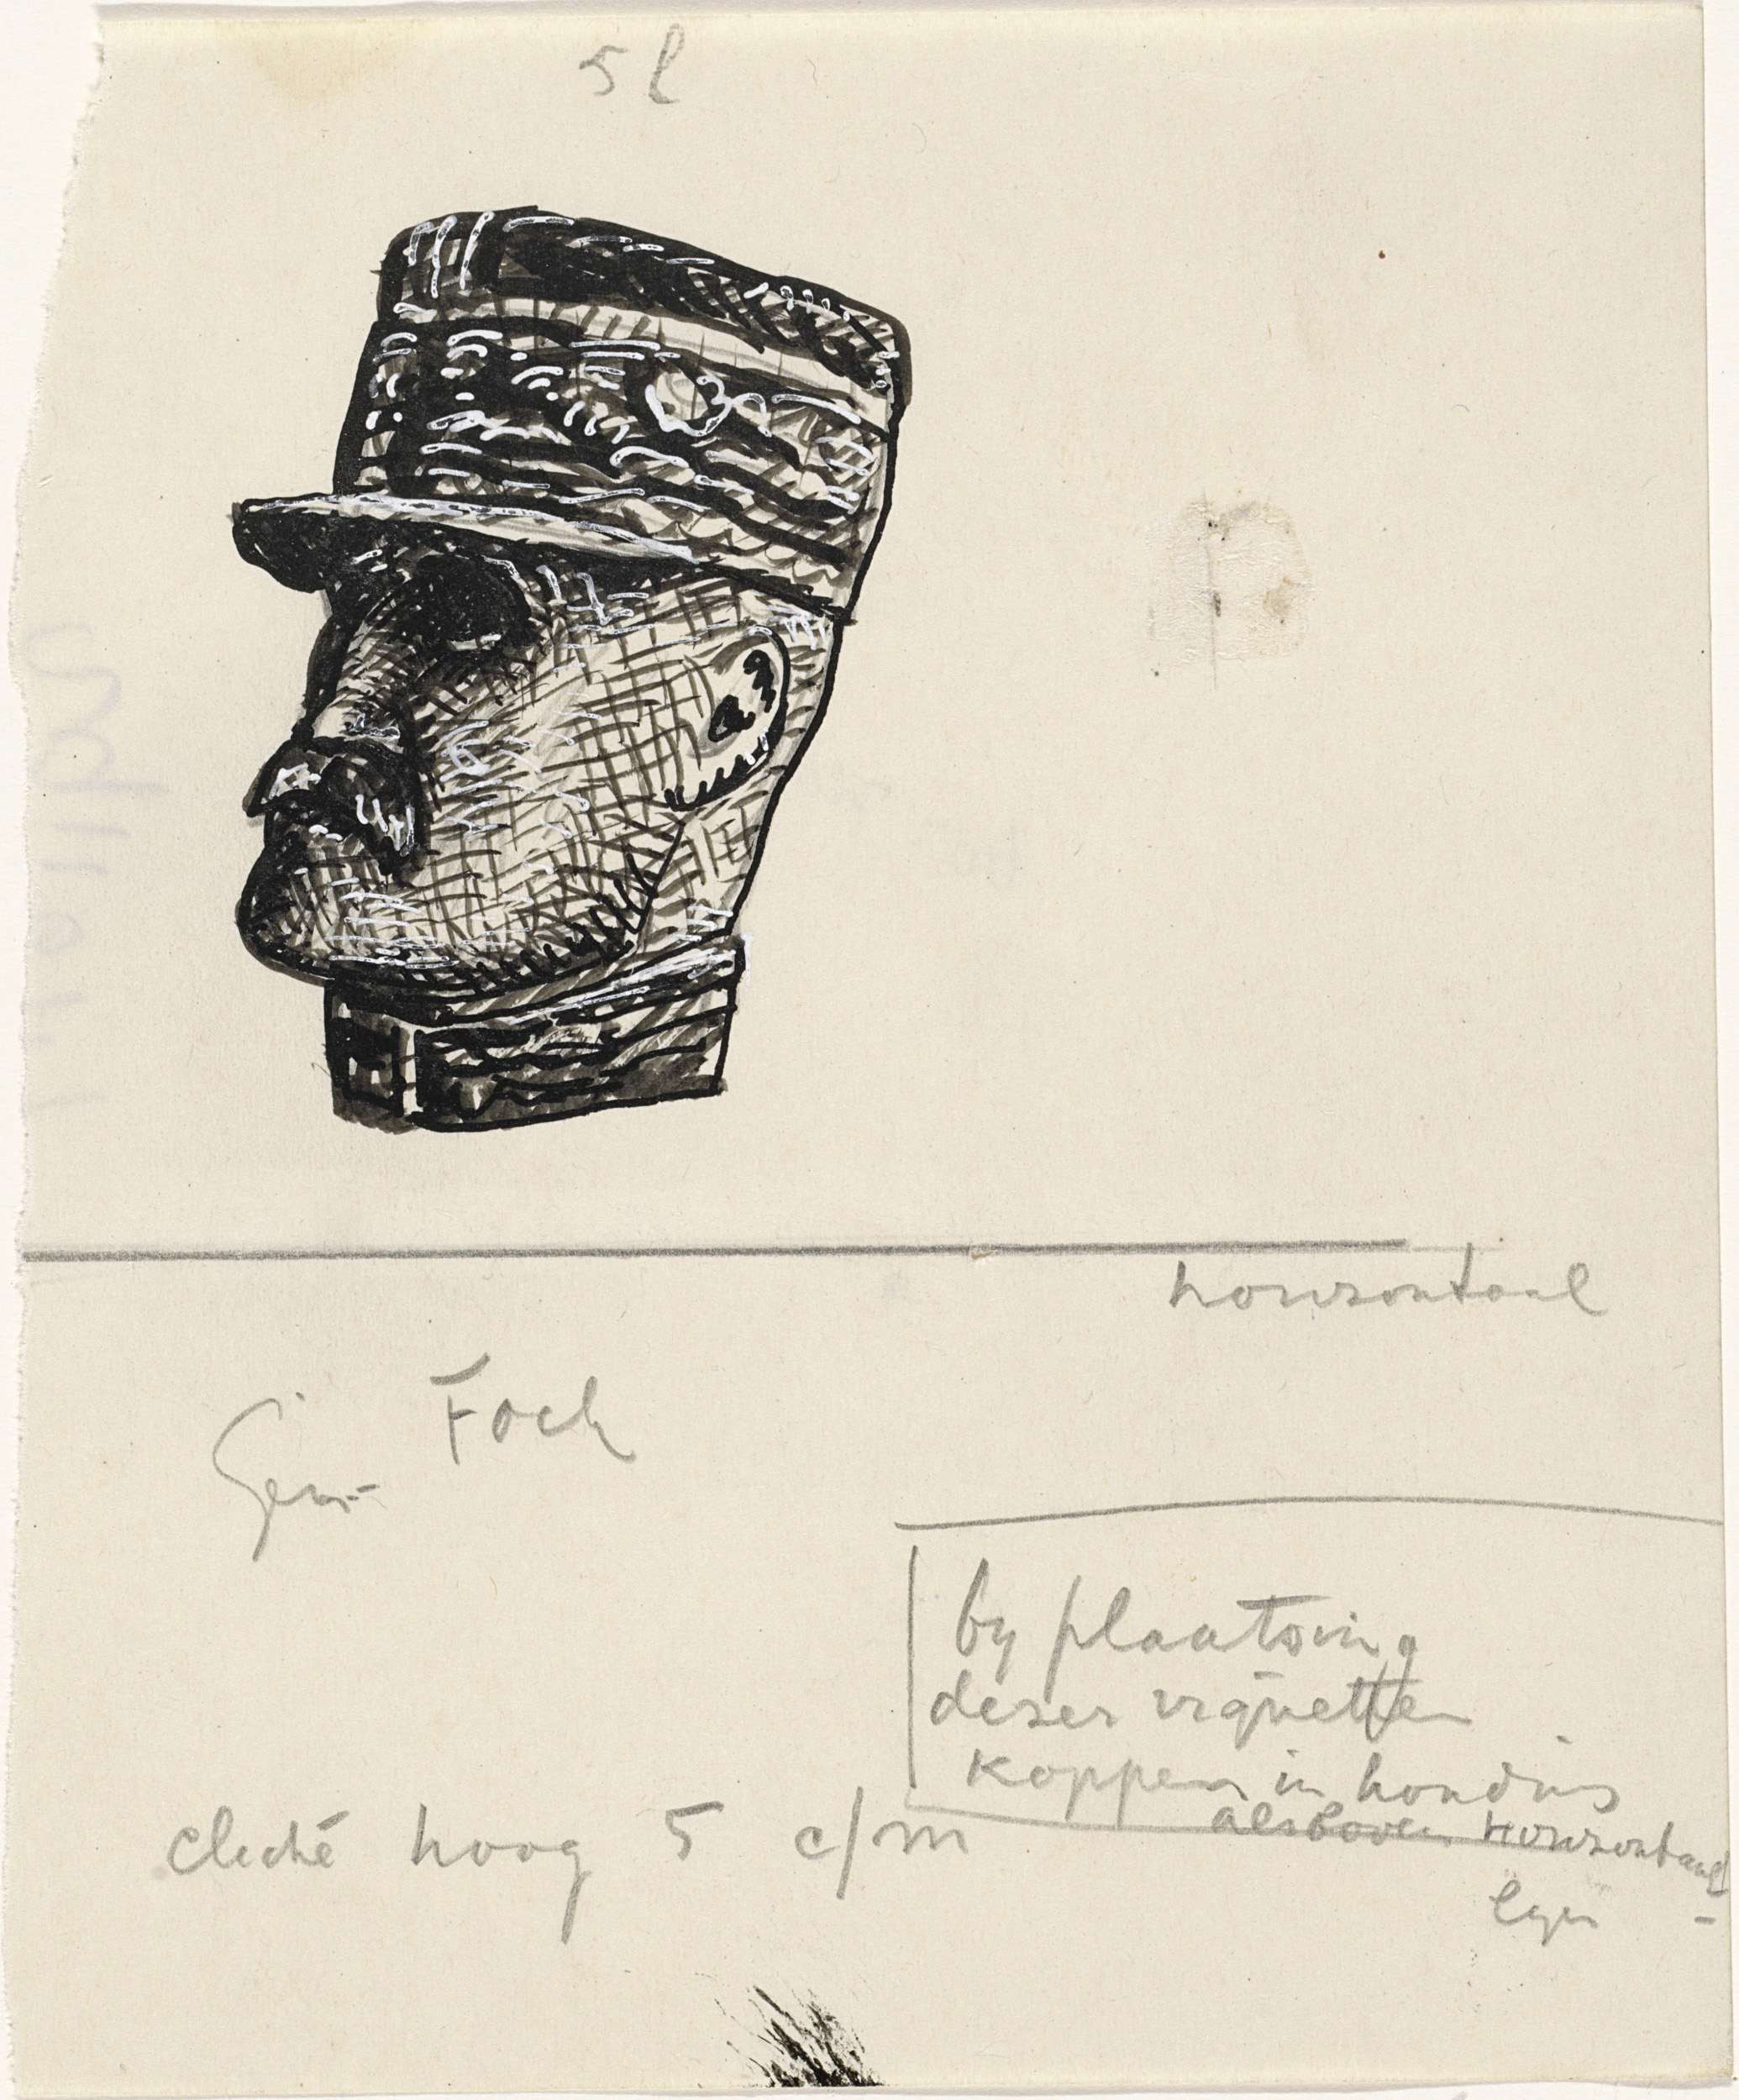 5 l
horizontaal
Gen. Foch
by plaatsing
dezer vignetten
koppen in
alsboven horizontaal
cliché hoog 5 c/m